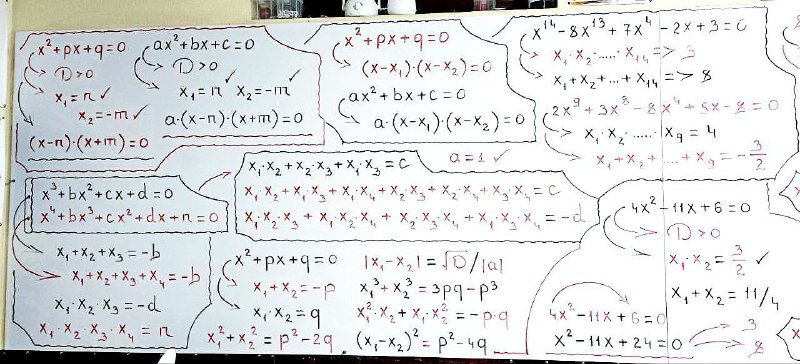 x²+px+q=0
D>0
x₁=n ✓
x₂=-m ✓
(x-n)·(x+m)=0
ax²+bx+c=0
D>0
x₁=n ✓ x₂=-m ✓
a·(x-n)·(x+m)=0
x²+px+q=0
(x-x₁)·(x-x₂)=0
ax²+bx+c=0
a·(x-x₁)·(x-x₂)=0
a=1 ✓
x¹⁴-8x¹³+7x⁴-2x+3=0
x₁·x₂·.....·x₁₄=>3
x₁+x₂+...+x₁₄=>8
2x⁹+3x⁸-8x⁴+5x-8=0
x₁·x₂·.....·x₉=4
x₁+x₂+....+x₉=-3/2
x³+bx²+cx+d=0
x⁴+bx³+cx²+dx+n=0
x₁+x₂+x₃=-b
x₁+x₂+x₃+x₄=-b
x₁·x₂·x₃=-d
x₁·x₂·x₃·x₄=n
x₁·x₂+x₂·x₃+x₁·x₃=c
x₁·x₂+x₁·x₃+x₁·x₄+x₂·x₃+x₂·x₄+x₃·x₄=c
x₁·x₂·x₃+x₁·x₂·x₄+x₂·x₃·x₄+x₁·x₃·x₄=-d
x²+px+q=0
x₁+x₂=-p
x₁·x₂=q
x₁²+x₂²=p²-2q
|x₁-x₂|=√D/|a|
x₁³+x₂³=3pq-p³
x₁²·x₂+x₁·x₂²=-p·q
(x₁-x₂)²=p²-4q
4x²-11x+6=0
D>0
x₁·x₂=3/2 ✓
x₁+x₂=11/4
4x²-11x+6=0
x²-11x+24=0
3
8